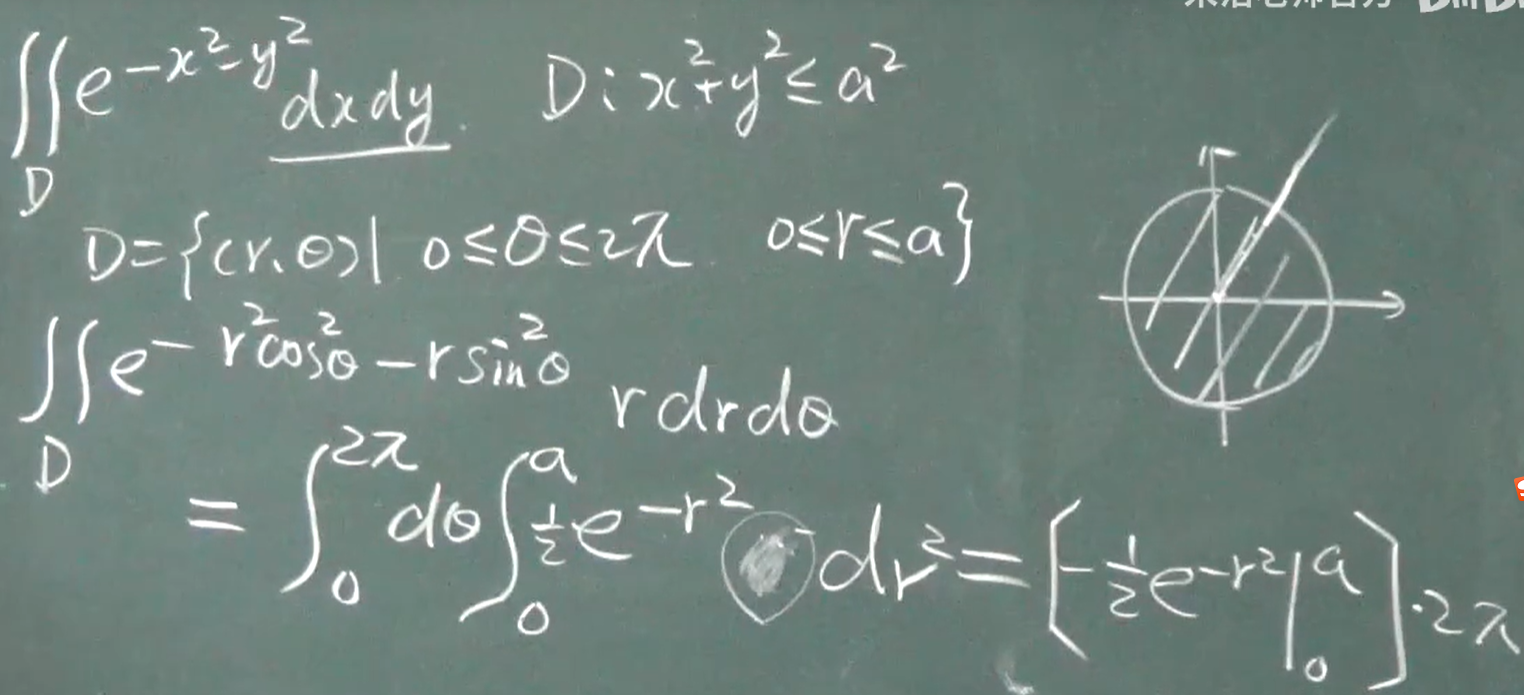 ∬_D e^{-x²-y²} dxdy. D: x²+y² ≤ a²
D={(r,θ)| 0≤θ≤2π 0≤r≤a}
∬_D e^{-r²cos²θ-r sin²θ} r dr dθ
= ∫_0^{2π} dθ ∫_0^a ½e^{-r²} dr² = [-½e^{-r²}|_0^a]·2π